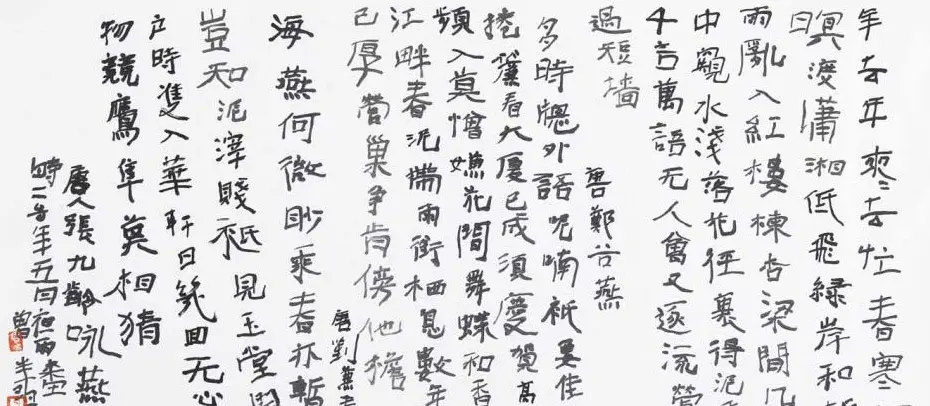 年去年來〻去忙春寒
暝渡瀟湘低飛綠岸和
雨亂入紅樓棟杏梁間几
中窺水淺落花徑裏得泥
千言萬語无人會又逐流鶯
過短墻
唐鄭谷燕
多時窗外語呢喃祗要佳
捲簾看大厦已成須慶賀高
頻入莫憎嫌花間舞蝶和香
江畔春泥帶雨銜栖息數年
已厚營巢爭肯傍他檐
唐劉兼
海燕何微眇乘春亦暫
豈知泥滓賤祗見玉堂開
户時雙入華軒日幾回无心
物競鷹隼莫相猜
唐人張九齡咏燕
時二年五月夜雨
曾